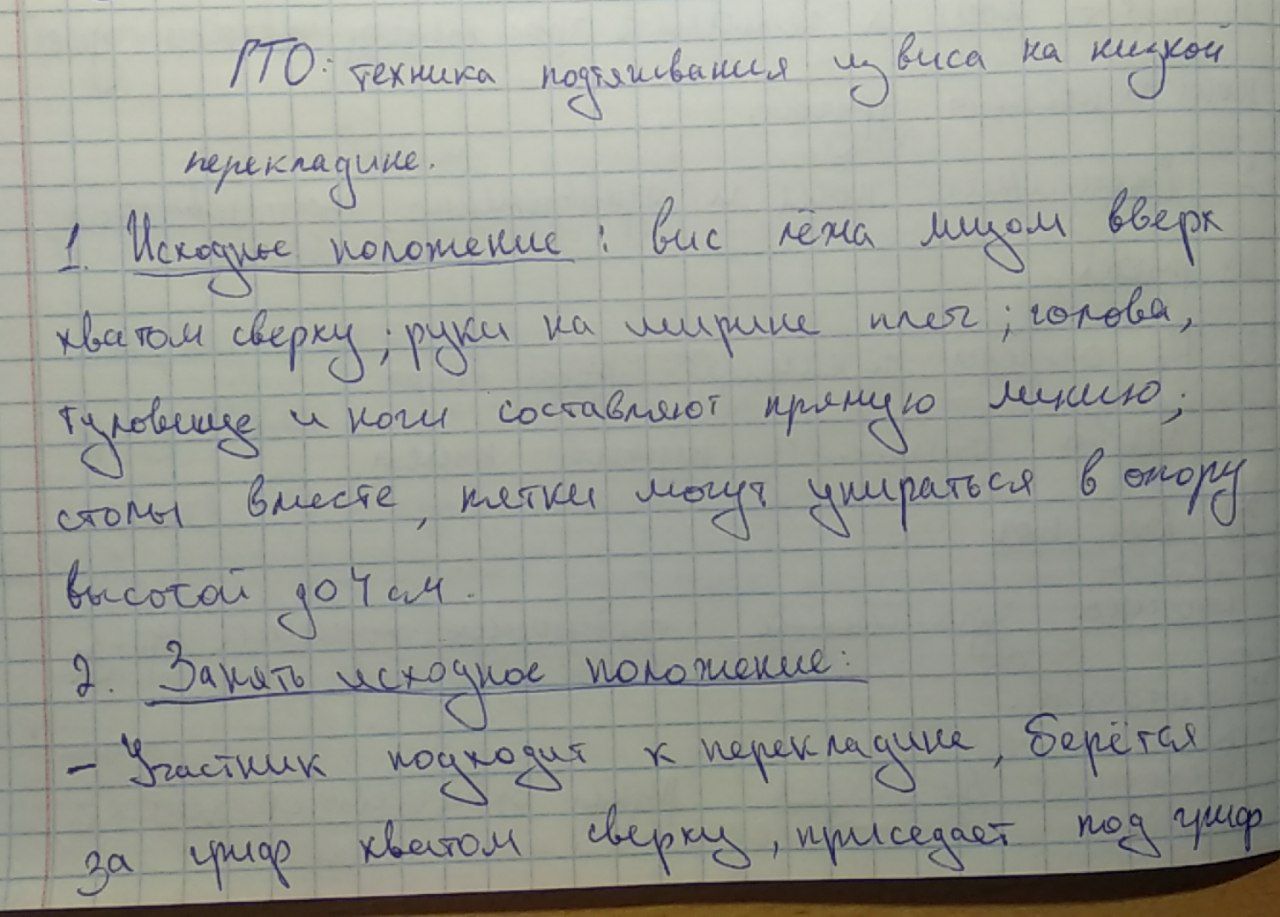 ГТО: техника подтягивания из виса на низкой
перекладине.
1. Исходное положение: вис лёжа лицом вверх
хватом сверху; руки на ширине плеч; голова,
туловище и ноги составляют прямую линию;
стопы вместе, пятки могут упираться в опору
высотой до 4 см.
2. Занять исходное положение:
- Участник подходит к перекладине, берётся
за гриф хватом сверху, приседает под гриф